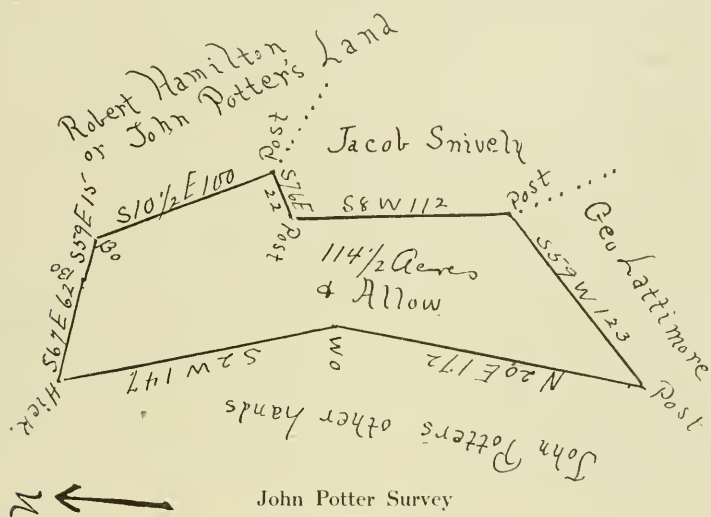 Robert Hamilton
or John Potter's Land
Post
Jacob Snively
Post
Geo Lattimore
S59E15
S10½E100
S76E
22
Post
S8W112
S59W123
BO
S67E62
114½ Acres
& Allow
Hick.
S2W147
WO
N20E172
Post
John Potter's other hands
N
John Potter Survey